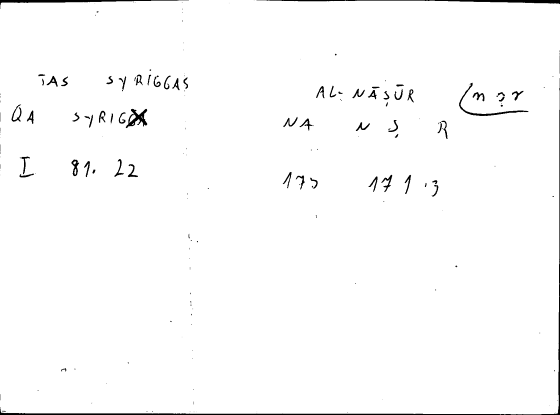 TAS SYRIGGAS
QA SYRIG
I 81. 22
AL-NĀṢŪR (nṣr
NA NṢ R
175 171.3